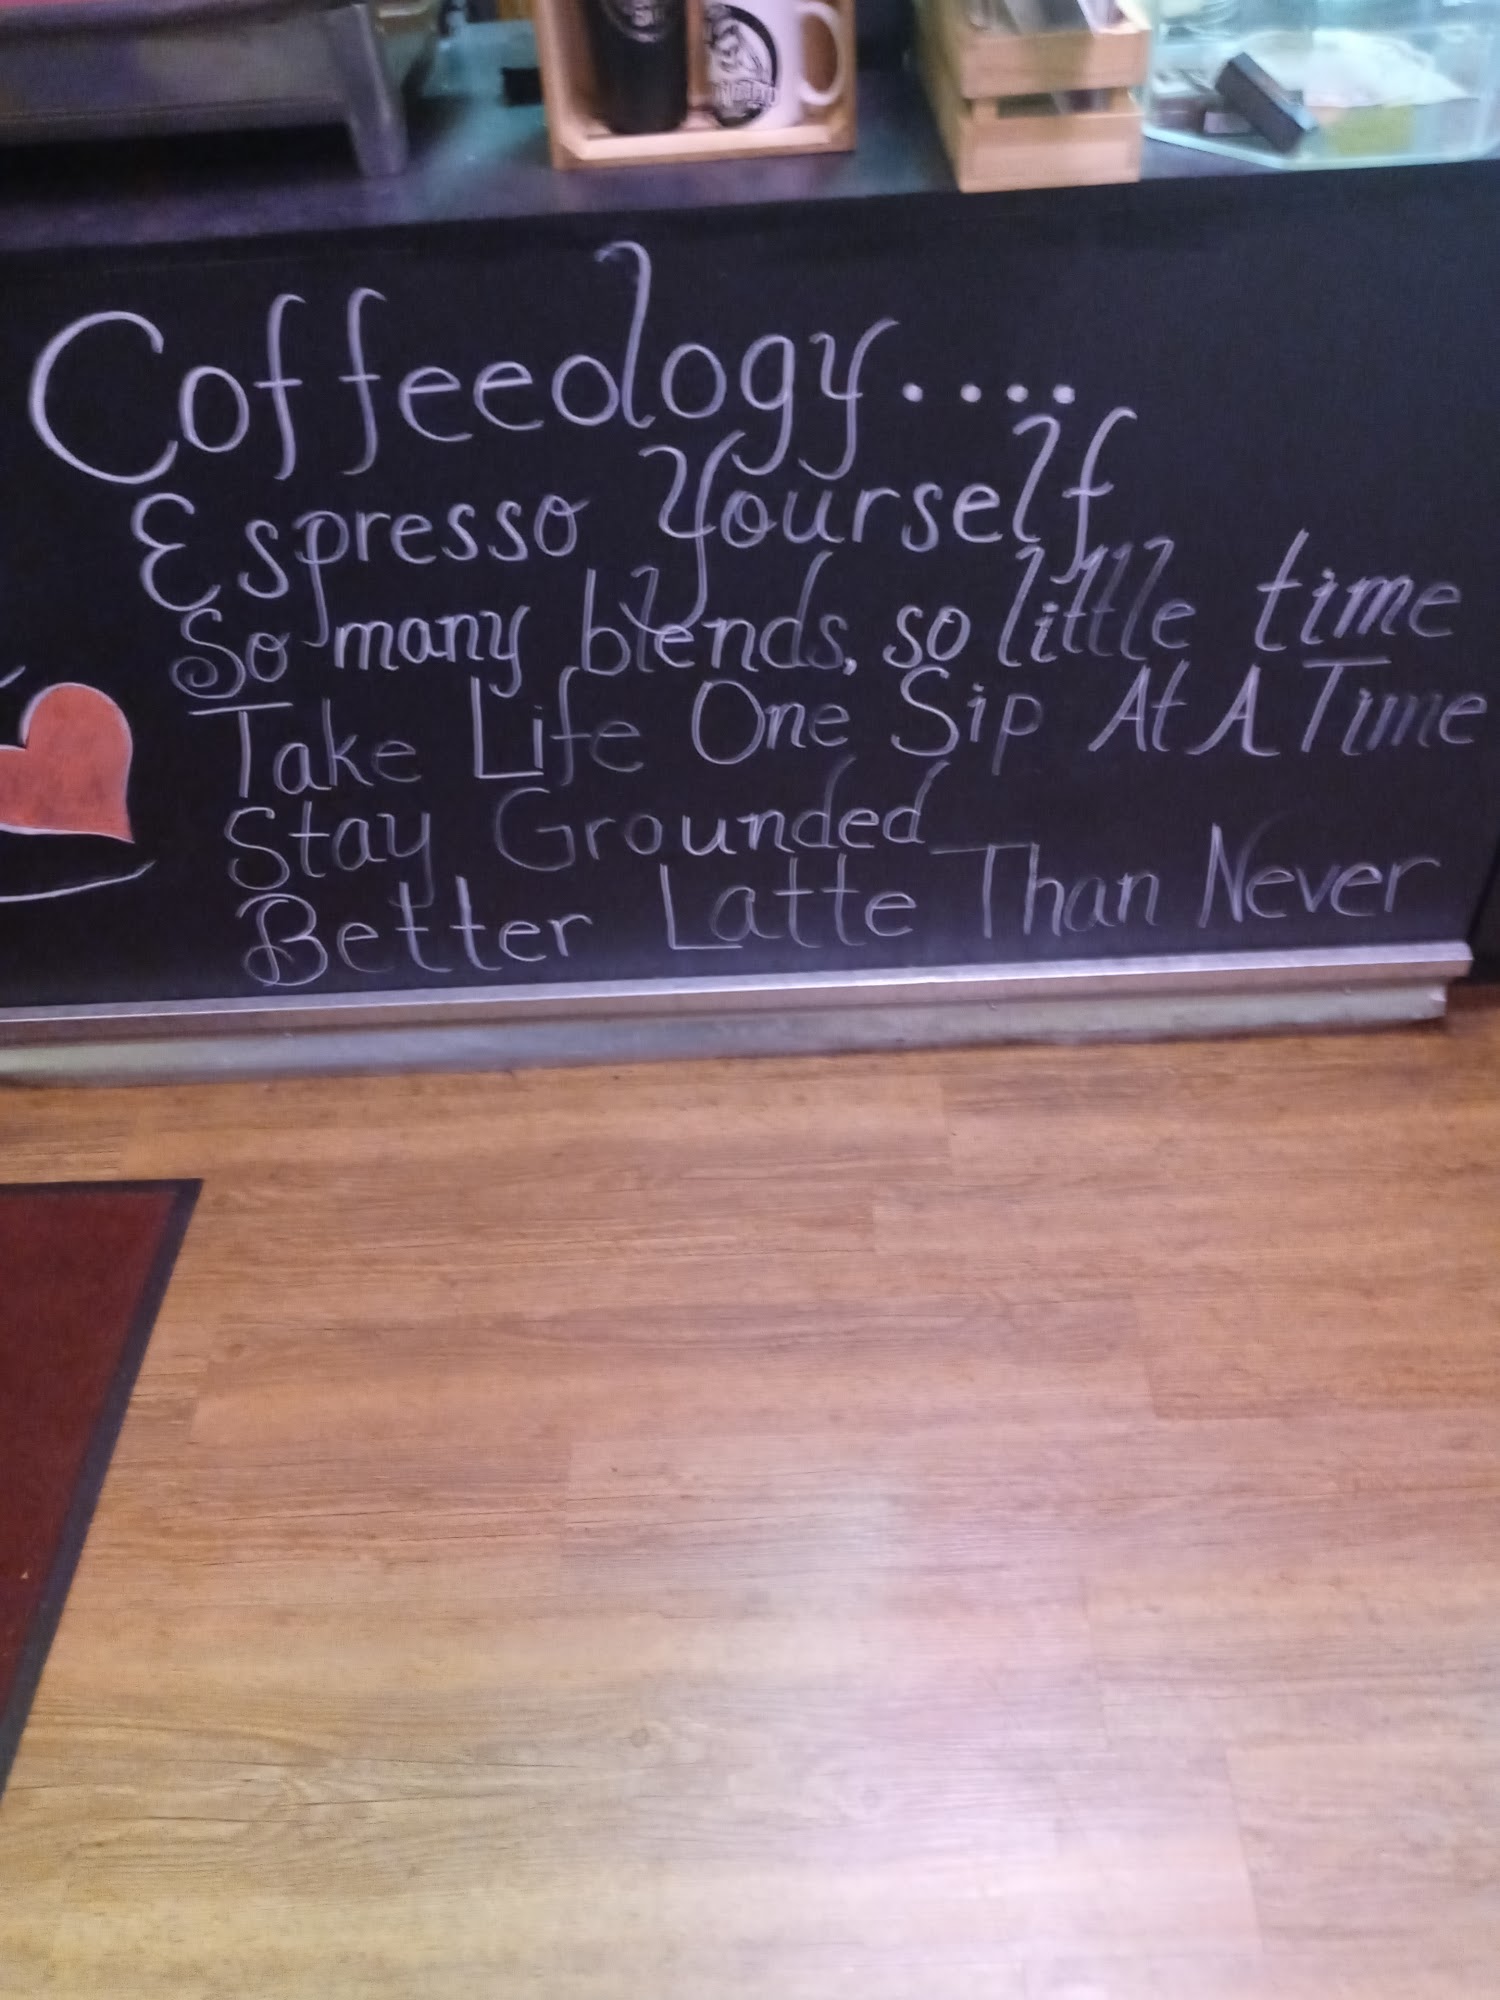 Coffeeology....
Espresso Yourself
So many blends, so little time
Take Life One Sip At A Time
Stay Grounded
Better Latte Than Never